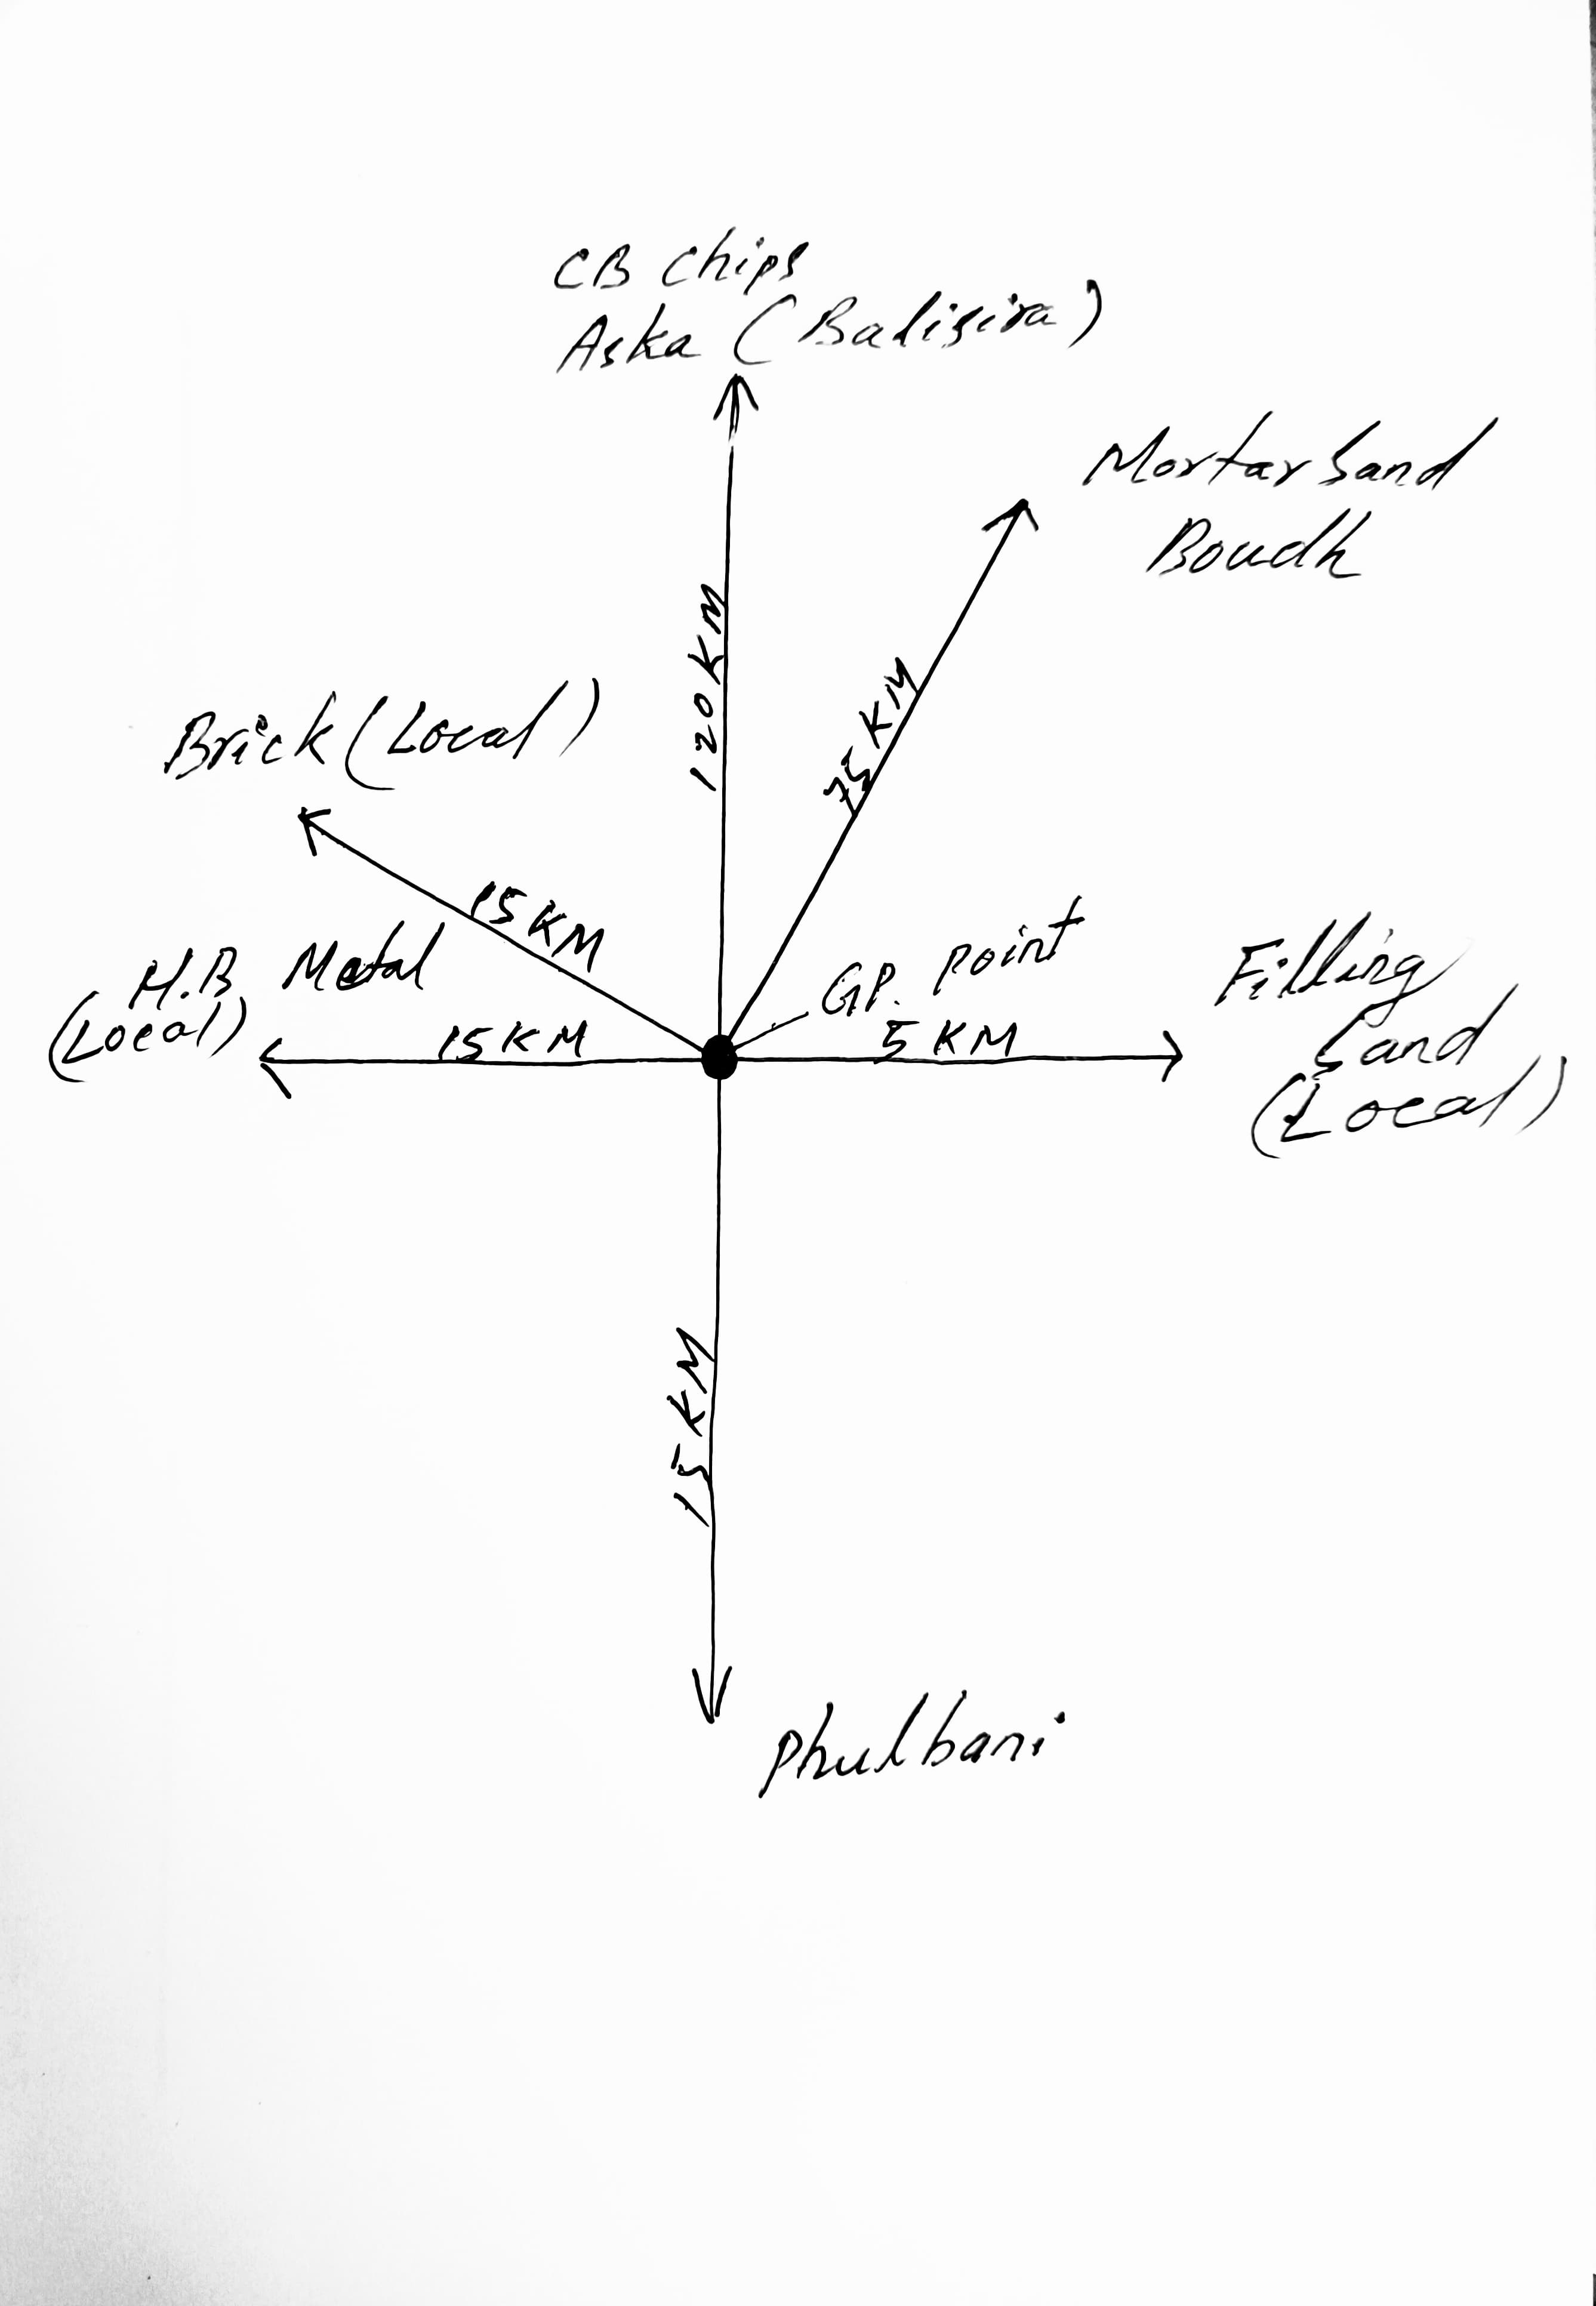 CB Chips
Aska (Balisira)
Mortar Sand
Boudh
120 KM
75 KM
Brick (Local)
15 KM
H.B. Metal
(Local)
15 KM
GP. Point
5 KM
Filling
Sand
(Local)
15 KM
Phulbani